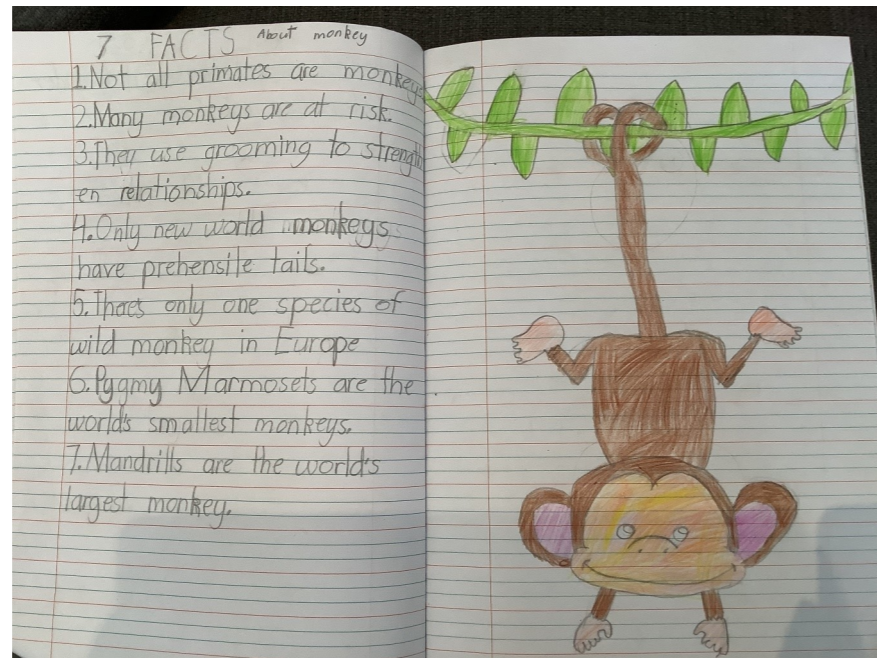 7 FACTS About monkey
1.Not all primates are monkeys
2.Many monkeys are at risk.
3.They use grooming to strength
en relationships.
4.Only new world monkeys
have prehensile tails.
5.Thaes only one species of
wild monkey in Europe
6.Pygmy Marmosets are the
world's smallest monkeys.
7.Mandrills are the world's
largest monkey.